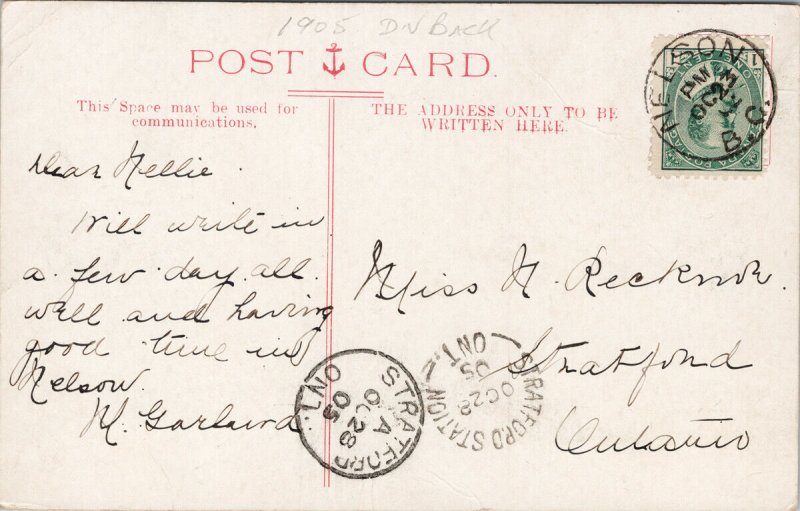 1905 DN BACK
POST CARD.
This Space may be used for
communications.
THE ADDRESS ONLY TO BE
WRITTEN HERE.
NELSON
PM
OC 24
B.C.
Dear Nellie.
Will write in
a few day. all.
well and having
good time in
Nelson.
M. Garland
Miss N.
Stratford
Ontario
STRATFORD ONT.
A
OC 28
05
STRATFORD STATION, ONT.
OC 28
05